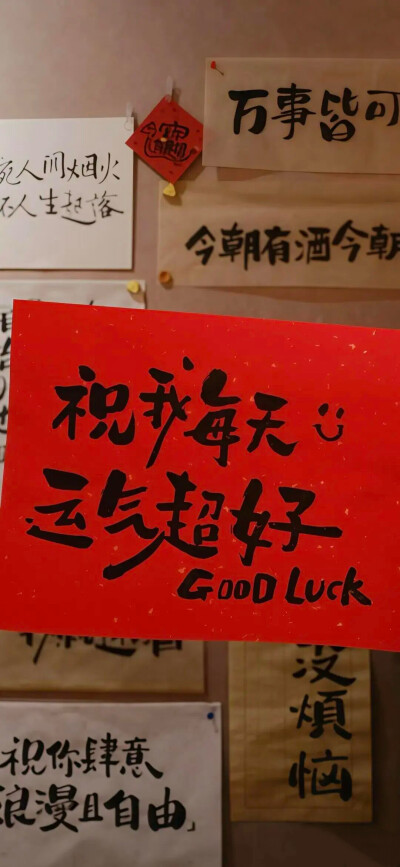 万事皆可
今朝有酒今朝
人间烟火
人生起落
祝我每天
运气超好
GOOD LUCK
没煩恼
祝你肆意
浪漫且自由」